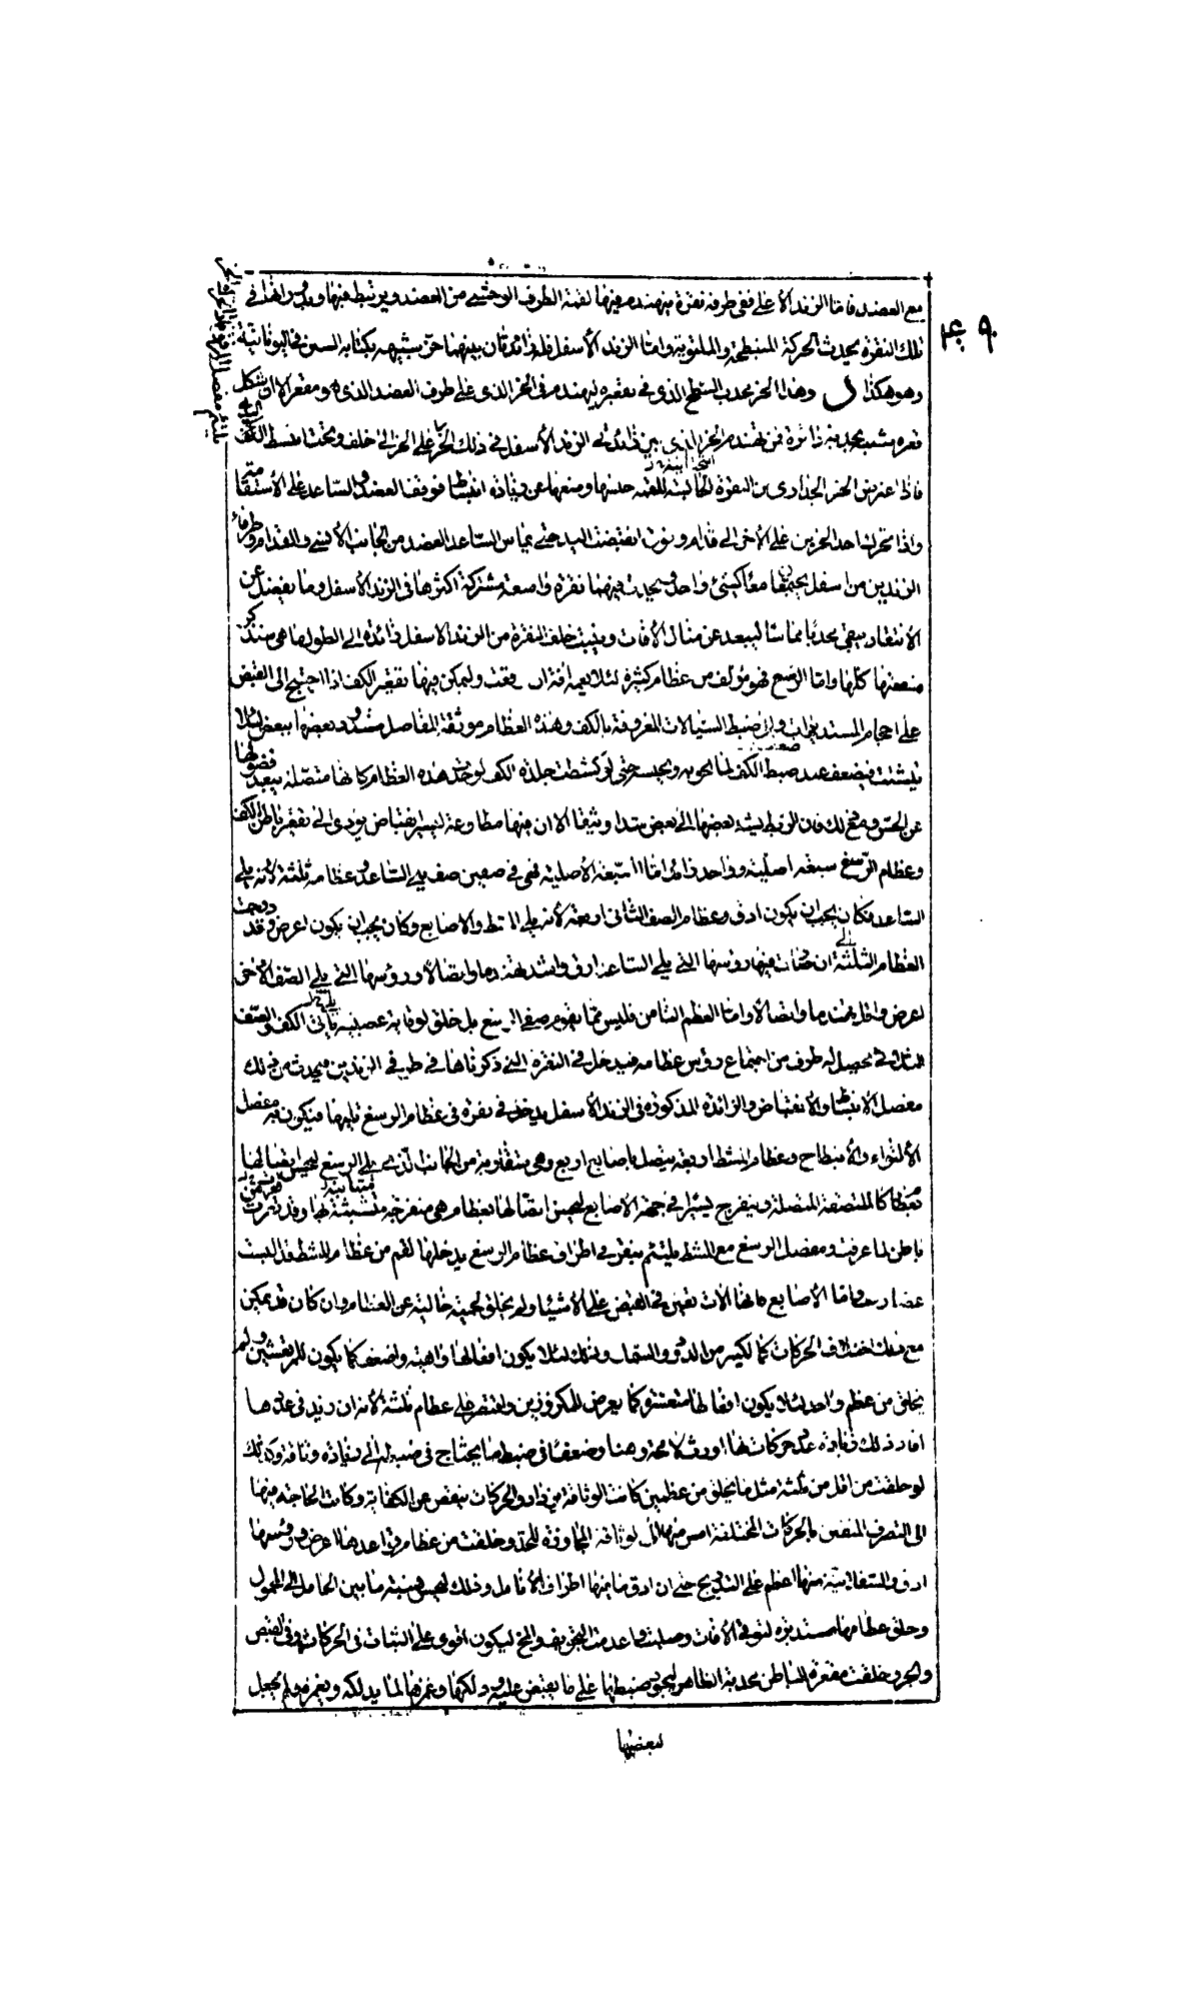 مع العضد فاما الزند الأعلى ففى طرفه نقرة يتهندم فيها لقمة الطرف الوحشى من العضد ويرتبط فيها وبدورانها فى
تلك النقرة يحدث الحركة المنبطحة والملتوية واما الزند الأسفل فله زائدتان بينهما حز شبيهه بكتابة السين فى اليونانية
وهو هكذا وهذا الحز محدب السطح الذى فى تقعيره ليهندم فى الحز الذى على طرف العضد الذى هو مقعر الا ان شكل
قعره شبيه بحدبة دائرة فمن تهندم الحز الذى بين زائدتى الزند الأسفل فى ذلك الحز
فاذا تحرك الحز على الحز الى خلف وتحت انبسط اليد
فاذا اعترض الحز الجدارى من النقرة الحابسة للقمة حبسها ومنعها عن زيادة انبساط فوقف العضد والساعد على الأستقامة
واذا تحرك احد الحزين على الأخر الى قدام وفوق انقبضت اليد حتى يماس الساعد العضد من الجانب الأنسى والقدام وطرفا
الزندين من اسفل يجتمعان معا كشئ واحد ويحدث فيهما نقرة واسعة مشتركة اكثرها فى الزند الأسفل وما يفضل عن
الأنتقار يبقى محدبا مملسا ليبعد عن منال الأفات وينبت خلف النقرة من الزند الاسفل زائدة الى الطول ما هى سنذكر
منفعتها كلها واما الرسغ فهو مؤلف من عظام كثيرة لئلا يعمه افة ان وقعت وليمكن فيها تقعير الكف اذا احتيج الى القبض
على اجسام مستديرات والى ضبط السيالات المغروفة بالكف وهذه العظام موثقة المفاصل مشدود بعضها ببعض لئلا
يتشتت فيضعف عند ضبط الكف لما يحويه ويحبسه حتى لو كشطت جلدة الكف لوجدت هذه العظام كانها متصلة يبعد فصولها
عن الحس ومع ذلك فان الربط يشد بعضها الى بعض شدا وثيقا الا ان فيها مطاوعة ليسير انقباض يؤدى الى تقعير باطن الكف
وعظام الرسغ سبعة اصلية وواحد زائد اما السبعة الأصلية فهى فى صفين صف يلى الساعد وعظامه ثلثة لأنه يلى
الساعد فكان يجب ان يكون ادق وعظام الصف الثانى اربعة لأنه يلى المشط والاصابع وكان يجب ان يكون اعرض وقد درجت
العظام الثلثة الى ان فيها رؤسها التى يلى الساعد ارق واشد تهندما واتصالا ورؤسها التى يلى الصف الأخر
اعرض واقل تهندما واتصالا واما العظم الثامن فليس مما يقوم صفى الرسغ بل خلق لوقاية عصبة يأتى الكف والصف
الثلاثى يحصل له طرف من اجتماع رؤس عظامه فيدخل فى النقرة التى ذكرناها فى طرفى الزندين فيحدث من ذلك
مفصل الأنبساط والأنقباض والزائدة المذكورة فى الزند الأسفل يدخل فى نقرة فى عظام الرسغ تليها فيكون به مفصل
الألتواء والأنبطاح وعظام المشط اربعة ليتصل باصابع اربع وهى متقاربة من الجانب الذى يلى الرسغ ليحسن اتصالها
بعظام كالملتصقة المتصلة وينفرج يسيرا فى جهة الاصابع ليحسن اتصالها بعظام هى منفرجة متباينة وقد قعرت
باطن لما عرفت ومفصل الرسغ مع المشط يلتئم بنقر فى اطراف عظام الرسغ يدخلها لقم من عظام المشط قد البست
غضاريف واما الأصابع فانها الات تعين فى القبض على الأشياء ولم يخلق لحمية خالية عن العظام وان كان قد يمكن
مع ذلك اختلاف الحركات كما لكثير من الدود والسمك وذلك لئلا يكون افعالها واهية واضعف كما يكون للمرتعشين ولم
يخلق من عظم واحد لئلا يكون افعالها متعسرة كما يعرض للمكزوزين واقتصر على عظام ثلثة لأنه ان زيد فى عددها
افاد ذلك زيادة عدد حركات لها اورث لا محة وهنا وضعفا فى ضبط ما يحتاج فى ضبطه الى زيادة وثاقة وكذلك
لو خلقت من اقل من ثلثة مثل ما يخلق من عظمين كانت الوثاقة يزداد والحركات ينقص عن الكفاية وكانت الحاجة فيها
الى التصرف المتفنن بالحركات المختلفة امس منها الى الوثاقة المجاوزة للحد وخلقت من عظام قواعدها اعرض ورؤسها
ادق والسفلانية منها اعظم على التدريج حتى ان ادق ما فيها اطراف الأنامل وذلك ليحسن نسبة ما بين الحامل الى المحمول
وخلق عظامها مستديرة لتوقى الأفات وصلبت واعدمت التجويف والمخ ليكون اقوى على الثبات فى الحركات وفى القبض
والجر وخلقت مقعرة الباطن محدبة الظاهر ليجود ضبطها على ما يقبض عليه ودلكها وغمزها لما يدلكه ويغمزه ولم يجعل
بعضها